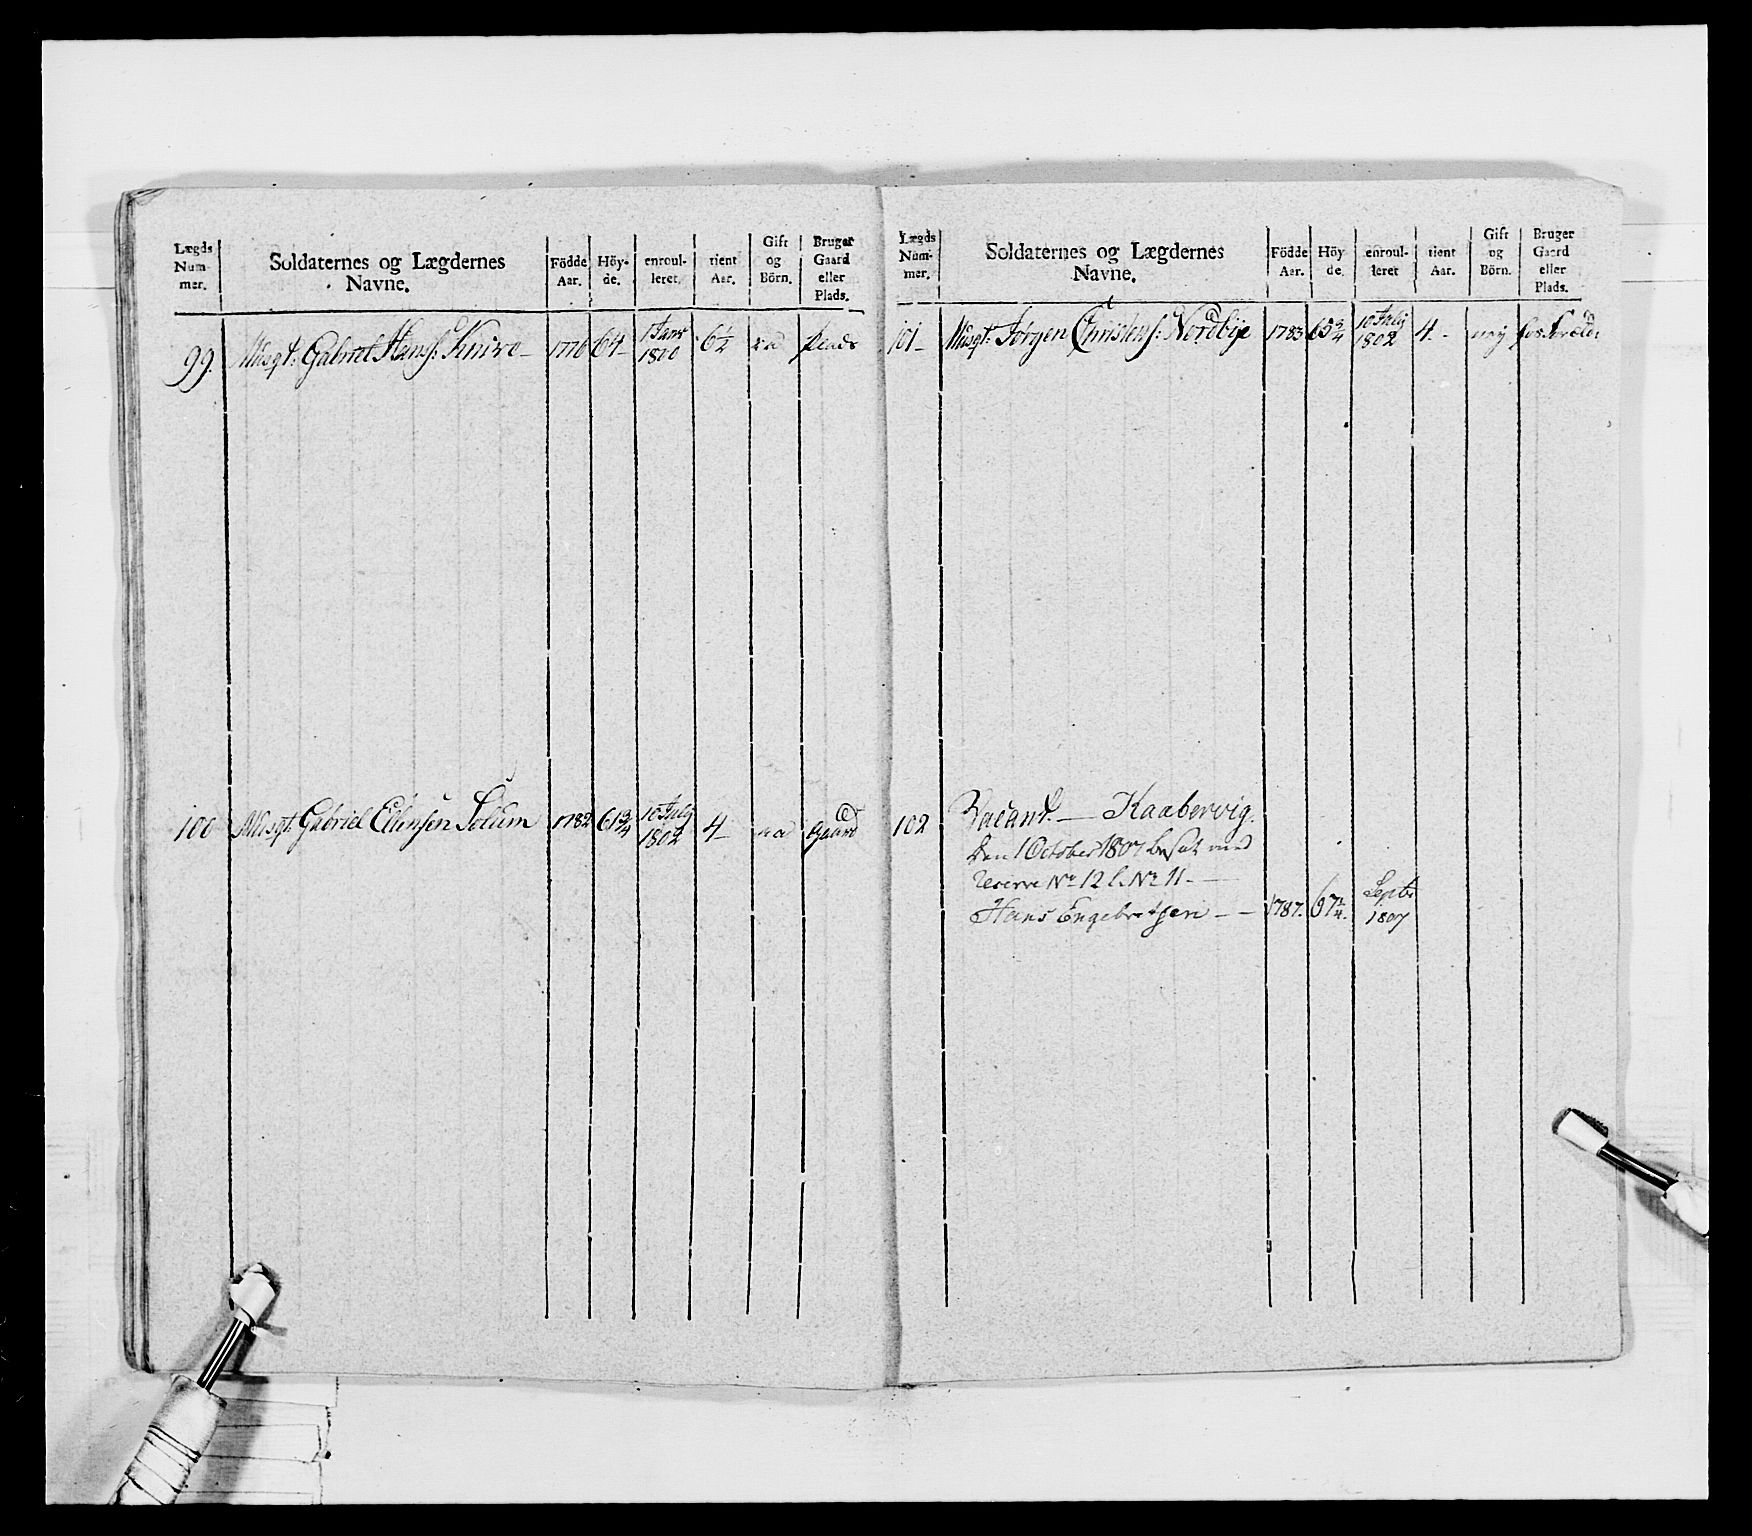 Lægds Num- mer.
Soldaternes og Lægdernes Navne.
Födde Aar.
Höy- de.
enroul- leret.
tient Aar.
Gift og Börn.
Bruger Gaard eller Plads.
99. Musqt: Gabriel Hans: 1776 64 1 Janr 1800 6½ Plads
100 Musqt: Gabriel Ellensen Solum 1782 61¾ 10 July 1802 4 Gaard
Lægds Num- mer.
Soldaternes og Lægdernes Navne.
Födde Aar.
Höy- de.
enroul- leret
tient Aar.
Gift og Börn.
Bruger Gaard eller Plads.
101 Musqt: Jörgen Christens: Nordbye 1783 65¾ 10 July 1802 4 ney
102 Vacant. — Kaabervig.
Den 1 October 1807 besat med
reserve No 12 l. No 11. —
Hans Engebretsen — 1787. 67 Septr 1807